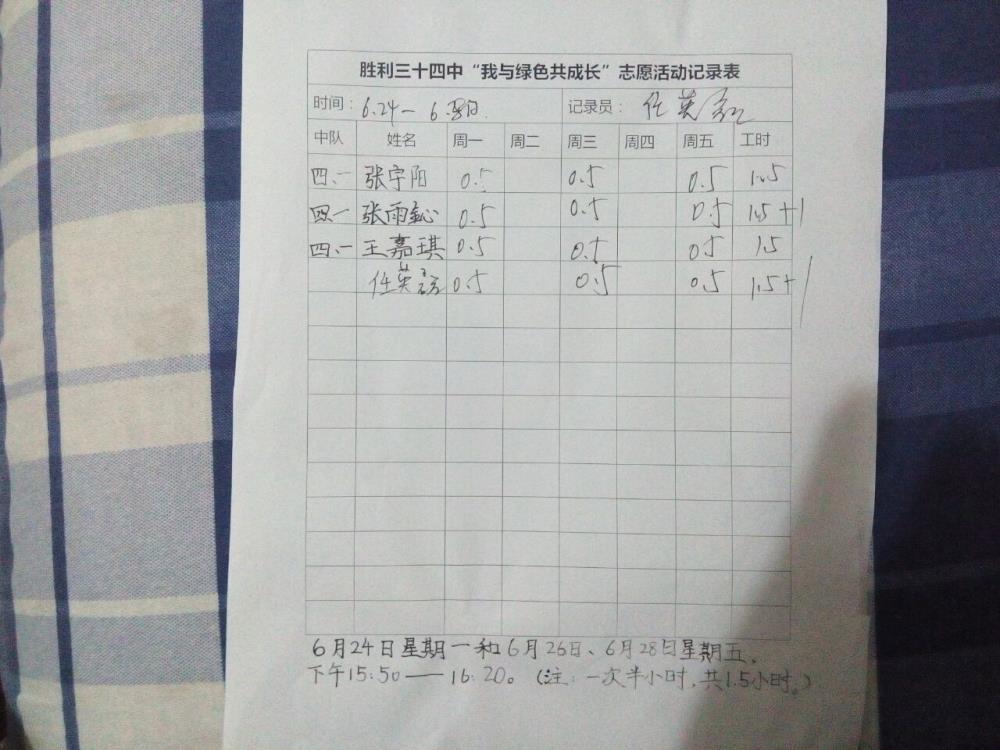 胜利三十四中“我与绿色共成长”志愿活动记录表
时间：6.24— 6. 记录员：任英
中队 姓名 周一 周二 周三 周四 周五 工时
四、一 张宇阳 0.5 0.5 0.5 1.5
四、一 张雨 0.5 0.5 0.5 1.5+1
四、一 王嘉琪 0.5 0.5 0.5 1.5
任英 0.5 0.5 0.5 1.5+1
6月24日星期一和6月26日、6月28日星期五.
下午15:50——16:20。（注：一次半小时,共1.5小时。）